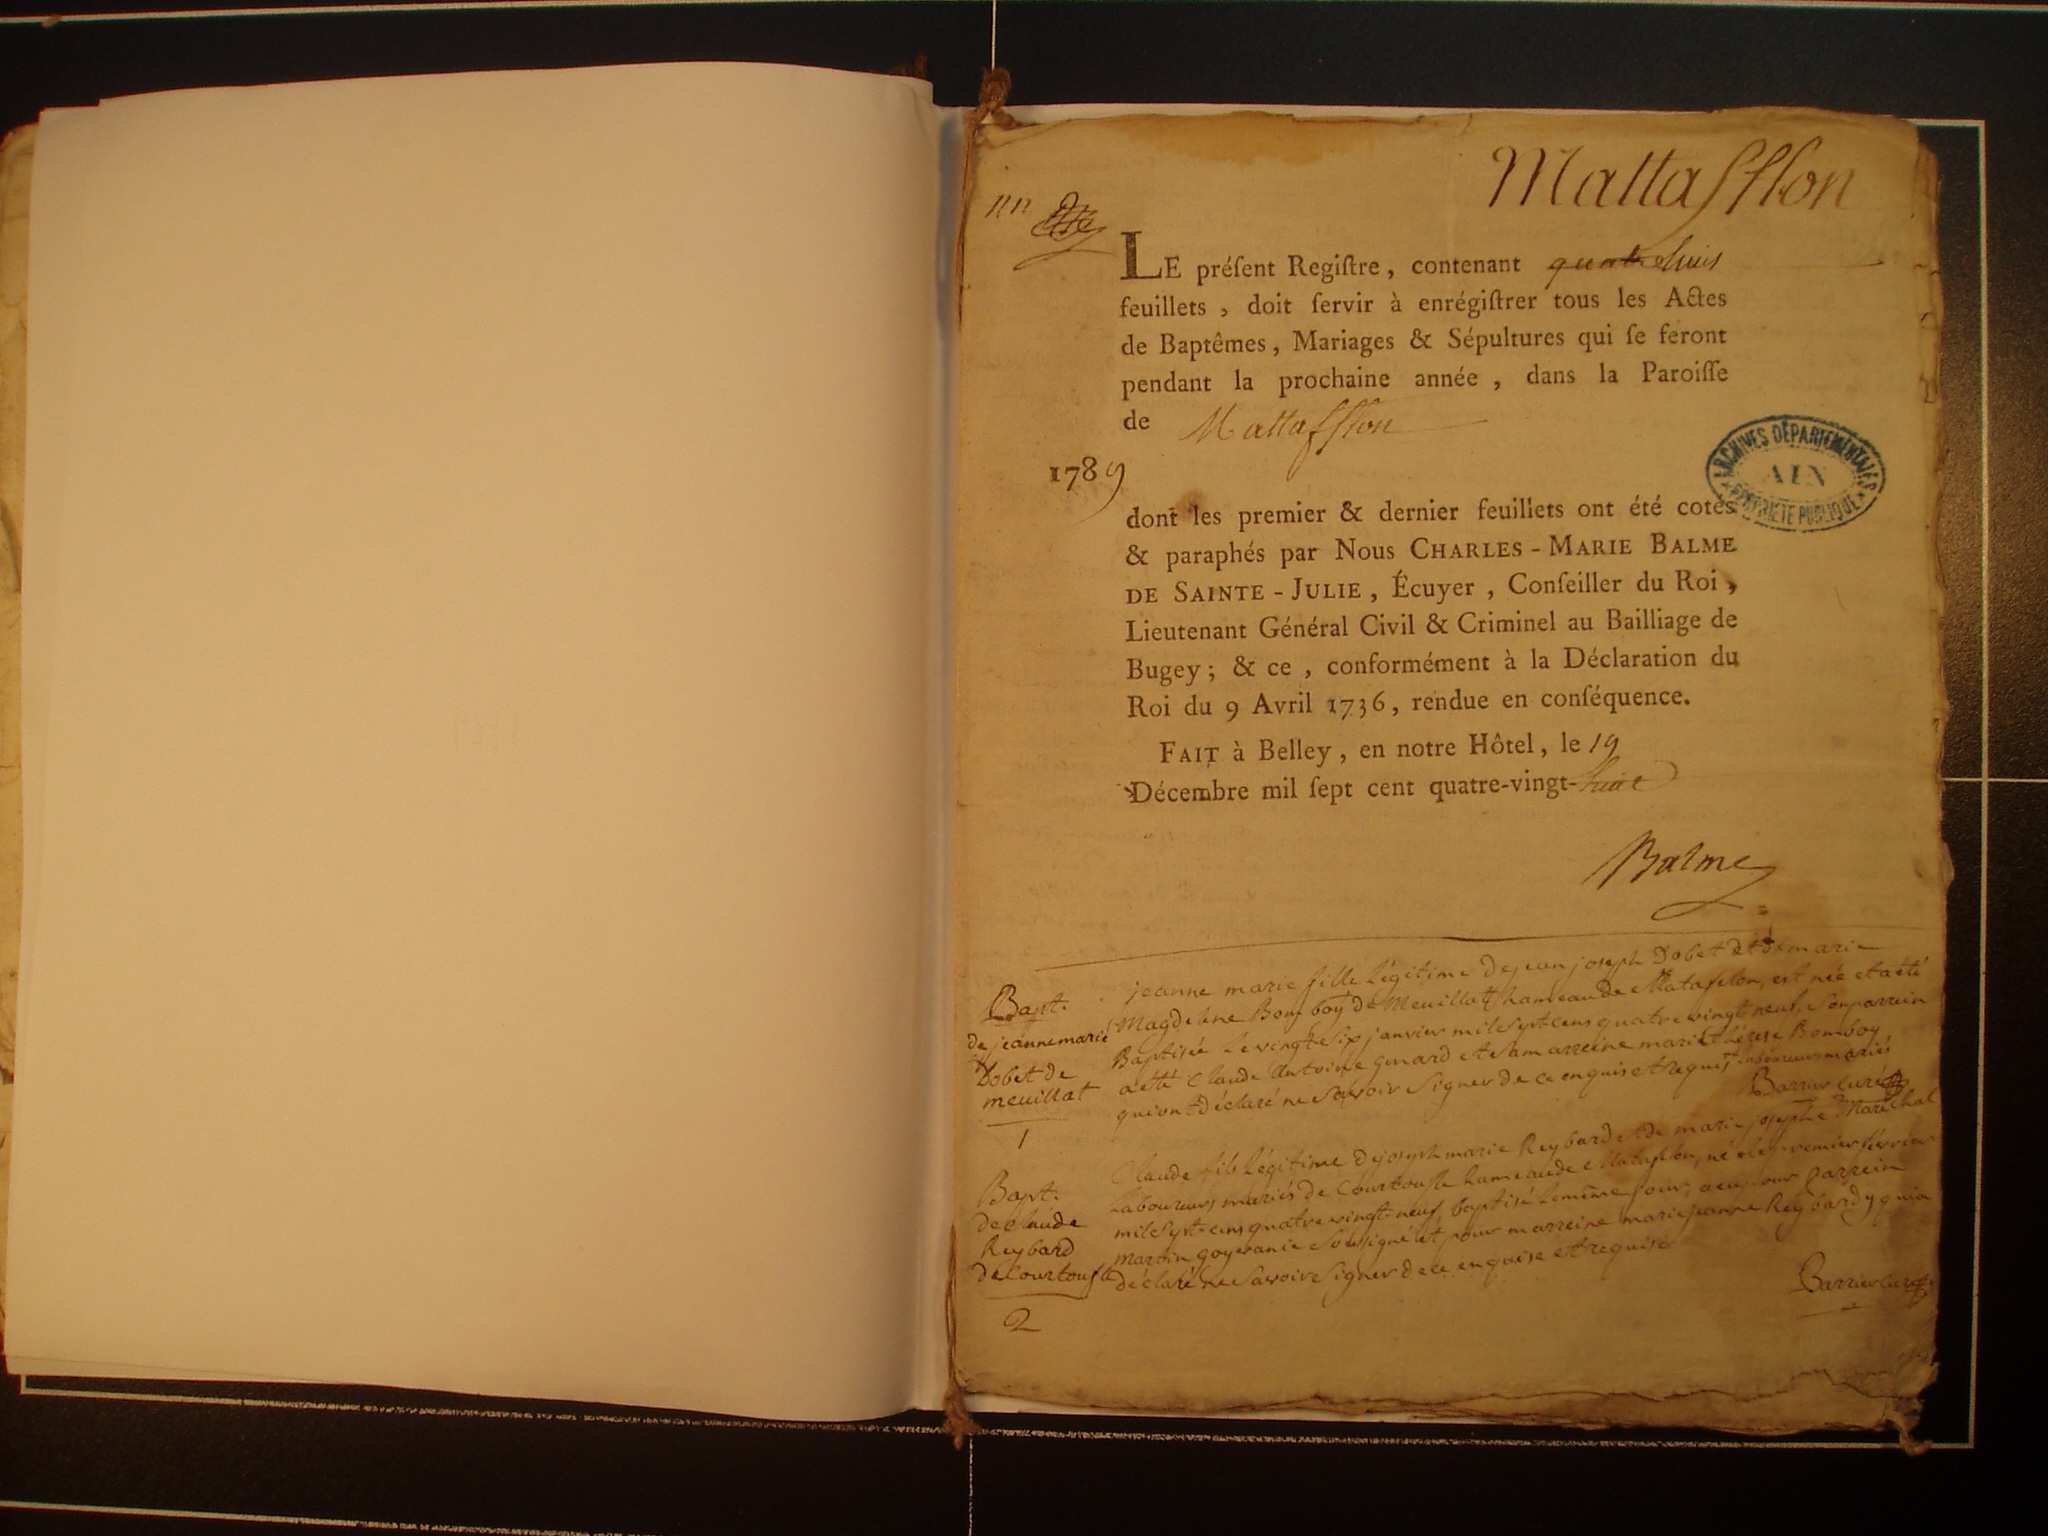 Mattafflon
LE préſent Regiſtre, contenant quatre huit
feuillets, doit ſervir à enrégiſtrer tous les Actes
de Baptêmes, Mariages & Sépultures qui ſe feront
pendant la prochaine année, dans la Paroiſſe
de Mattafflon
1789
dont les premier & dernier feuillets ont été cotés
& paraphés par Nous CHARLES-MARIE BALME
DE SAINTE-JULIE, Écuyer, Conſeiller du Roi,
Lieutenant Général Civil & Criminel au Bailliage de
Bugey; & ce, conformément à la Déclaration du
Roi du 9 Avril 1736, rendue en conſéquence.
FAIT à Belley, en notre Hôtel, le 19
Décembre mil ſept cent quatre-vingt-huit
ARCHIVES DÉPARTEMENTALES
AIN
PROPRIÉTÉ PUBLIQUE
Balme
Bapt.
de jeanne marie
Dobet de
meuillat
1
jeanne marie fille légitime de jean joseph Dobet et de marie
Magdelene Bomboy de Meuillat hameau de Matafelon, est née et a été
Baptisée le vingt Six janvier mil Sept cens quatre vingt neuf, Son parrein
a été Claude Antoine guard et Sa marreine marie thérese Bomboy
qui ont déclaré ne Savoir Signer de ce enquis et requis laboureurs mariés
Barrier Curé
Bapt.
de claude
Reybard
de Courtoufle
2
Claude fils légitime de joseph marie Reybard et de marie josephe Maréchal
Laboureurs mariés de Courtoufle hameau de Matafelon, né le premier février
mil Sept cens quatre vingt neuf baptisé le même jour, a eu pour parrein
Martin goyeranie Soussigné et pour marreine marie jeanne Reybard qui a
déclaré ne Savoir Signer de ce enquise et requise
Barrier Curé